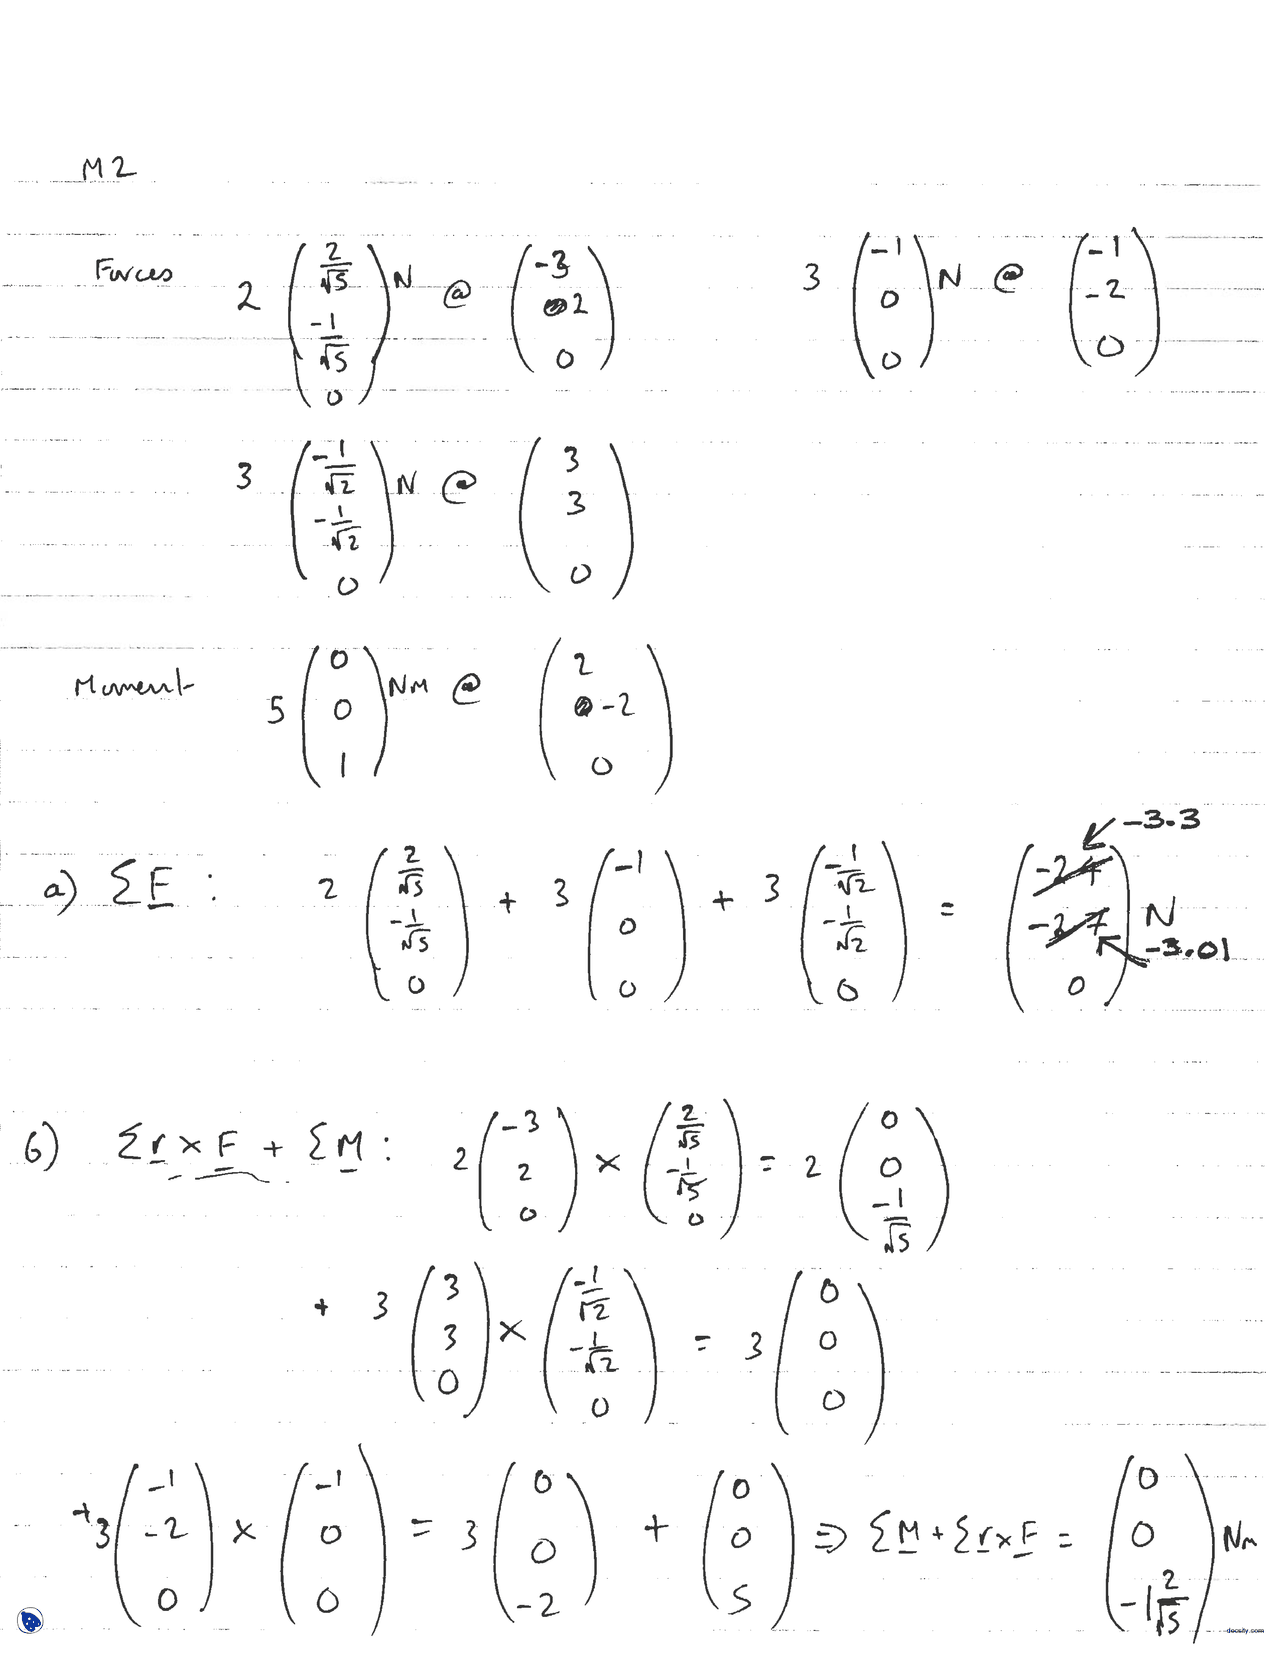 M2
Forces 2 (2/√5, -1/√5, 0) N @ (-3, 2, 0) 3 (-1, 0, 0) N @ (-1, -2, 0)
3 (-1/√2, -1/√2, 0) N @ (3, 3, 0)
Moment 5 (0, 0, 1) Nm @ (2, -2, 0)
-3.3
a) ΣF : 2 (2/√5, -1/√5, 0) + 3 (-1, 0, 0) + 3 (-1/√2, -1/√2, 0) = (-2.4, -2.7, 0) N
-3.01
b) Σr×F + ΣM : 2 (-3, 2, 0) × (2/√5, -1/√5, 0) = 2 (0, 0, -1/√5)
+ 3 (3, 3, 0) × (-1/√2, -1/√2, 0) = 3 (0, 0, 0)
+3 (-1, -2, 0) × (-1, 0, 0) = 3 (0, 0, -2) + (0, 0, 5) ⇒ ΣM + Σr×F = (0, 0, -1 2/√5) Nm
docsity.com